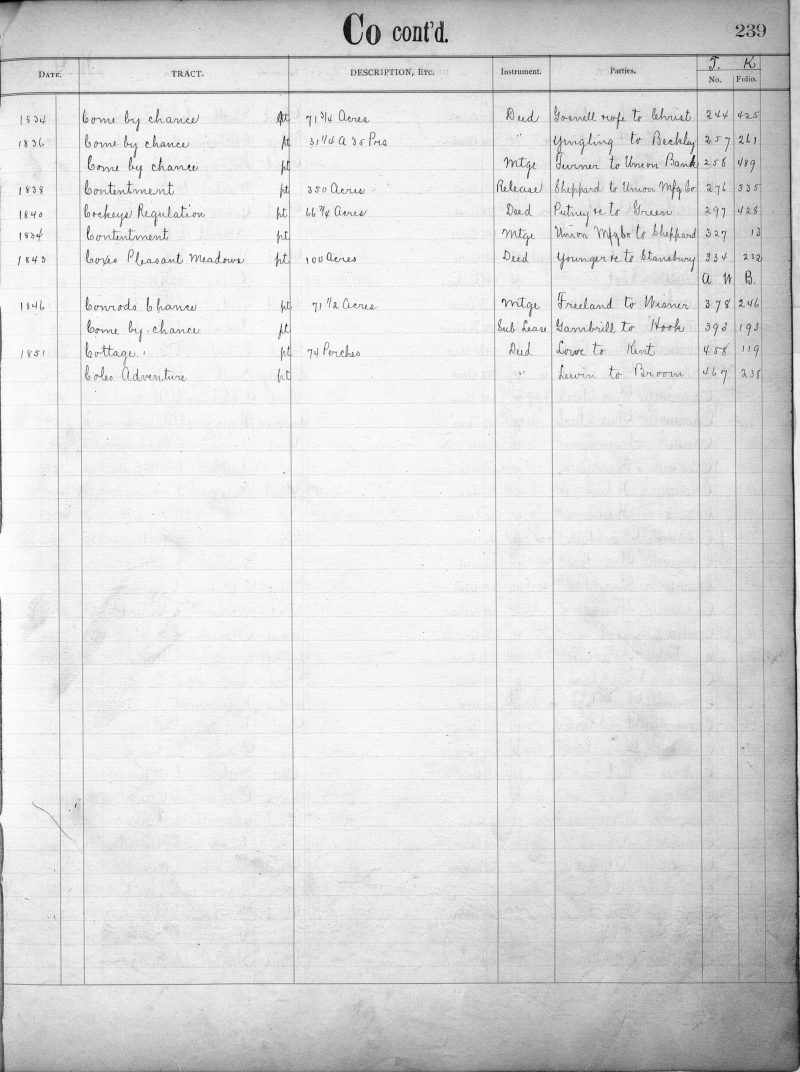 Co cont'd.
239
T. K
DATE. TRACT. DESCRIPTION, ETC. Instrument. Parties. No. Folio.
1834 Come by chance pt 71 3/4 Acres Deed Gosnell wife to Christ 244 425
1836 Come by chance pt 31 1/4 A 35 Prs " Yingling to Beckley 257 261
Come by chance pt Mtge Turner to Union Bank 258 489
1838 Contentment pt 350 Acres Release Sheppard to Union Mfg Co 276 335
1840 Cockeys Regulation pt 66 3/4 Acres Deed Putney to Green 297 428
1834 Contentment pt Mtge Union Mfg Co to Sheppard 327 13
1843 Coxes Pleasant Meadows pt 100 Acres Deed Younger to Stansbury 334 232
A W B.
1846 Conrods Chance pt 71 1/2 Acres Mtge Freeland to Wisner 378 246
Come by chance pt Sub Lease Gambrill to Hook 393 193
1851 Cottage pt 74 Perches Deed Lowe to Kent 458 119
Coles Adventure pt " Lewin to Broom 467